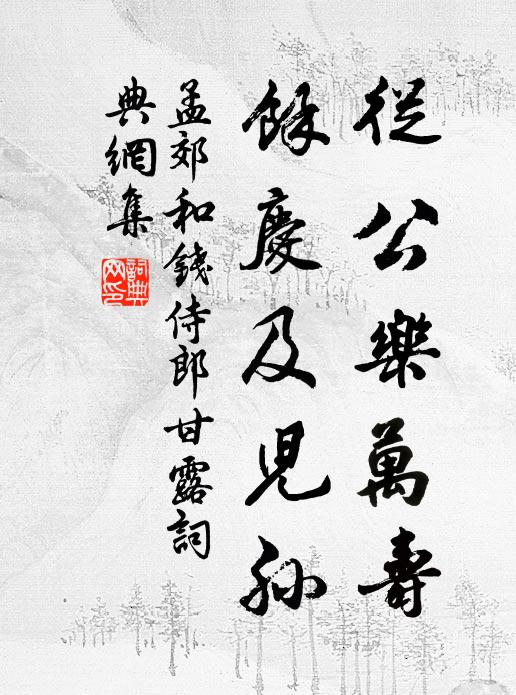 從公樂萬壽
餘慶及兒孫
孟郊和錢侍郎甘露詞
典網集
詞典
网印